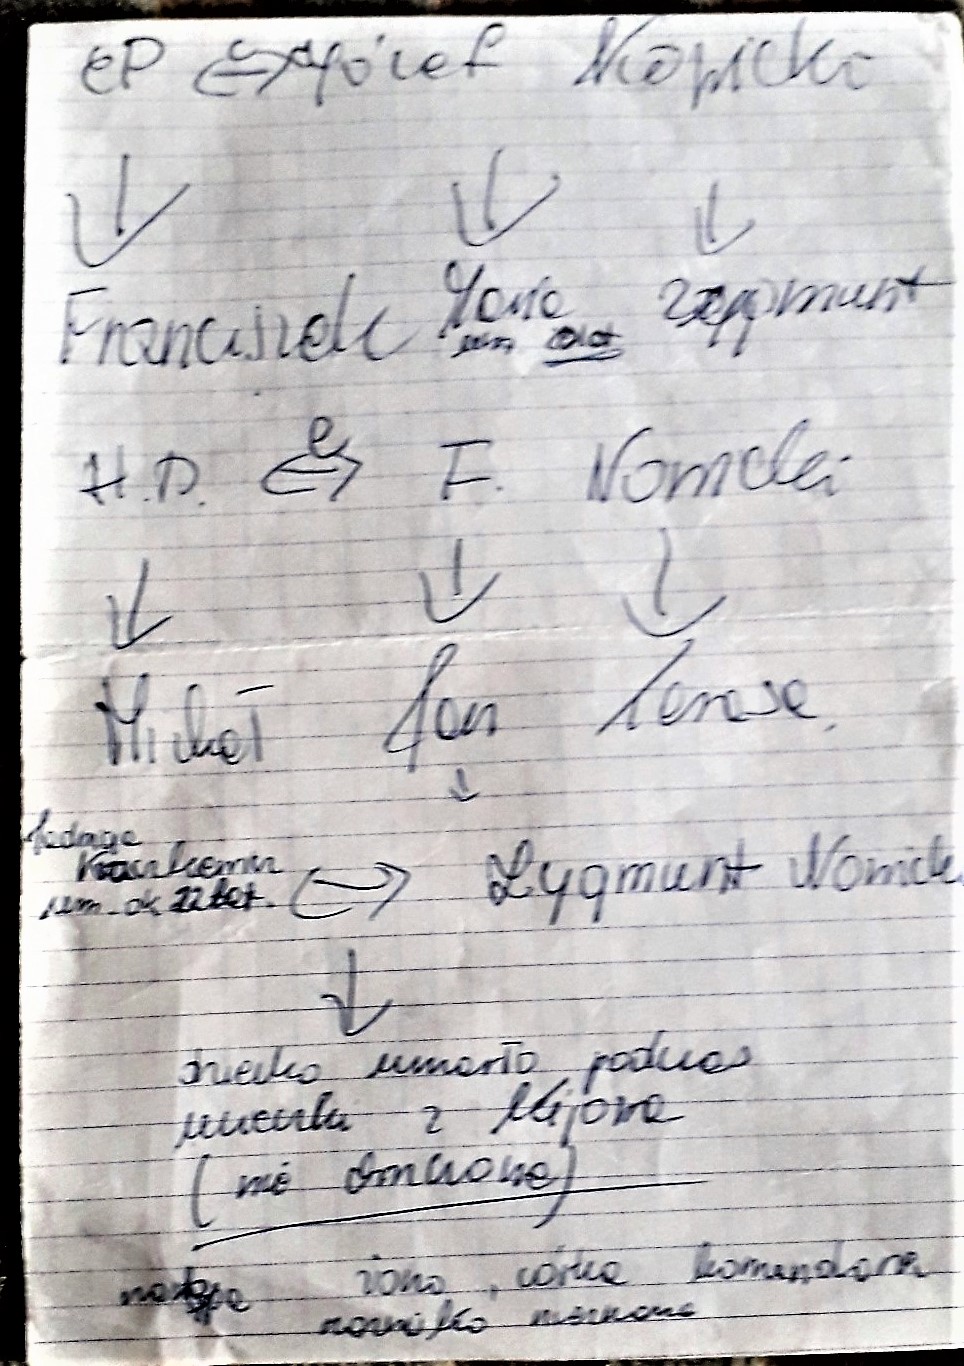 EP Józef Nowicki
Franciszek Zygmunt
um
H.D. F. Nowicki
Michał Jan
Jadwiga
um. ok 22 lat. Zygmunt Nowick
dziecko umarło podczas
ucieczki z Kijowa
(nie chrzczone)
następna żona, córka komendanta
nazwisko nieznane